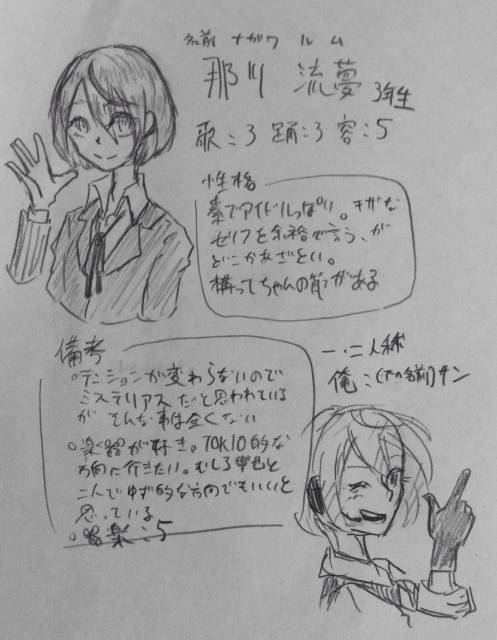 名前 ナガワ ルム
那川 流夢 3年生
歌:3 踊:3 容:5
性格
素でアイドルっぽい。キザな
セリフを余裕で言う、が
どこかあざとい。
構ってちゃんの節がある
備考
○テンションが変わらないので
ミステリアスだと思われている
がそんな事は全くない
○楽器が好き。TOKIO的な
方向に行きたい。むしろ と
二人でゆず的な方向でもいいと
思っている
○器楽:5
一・二人称
俺:(下の名前)サン